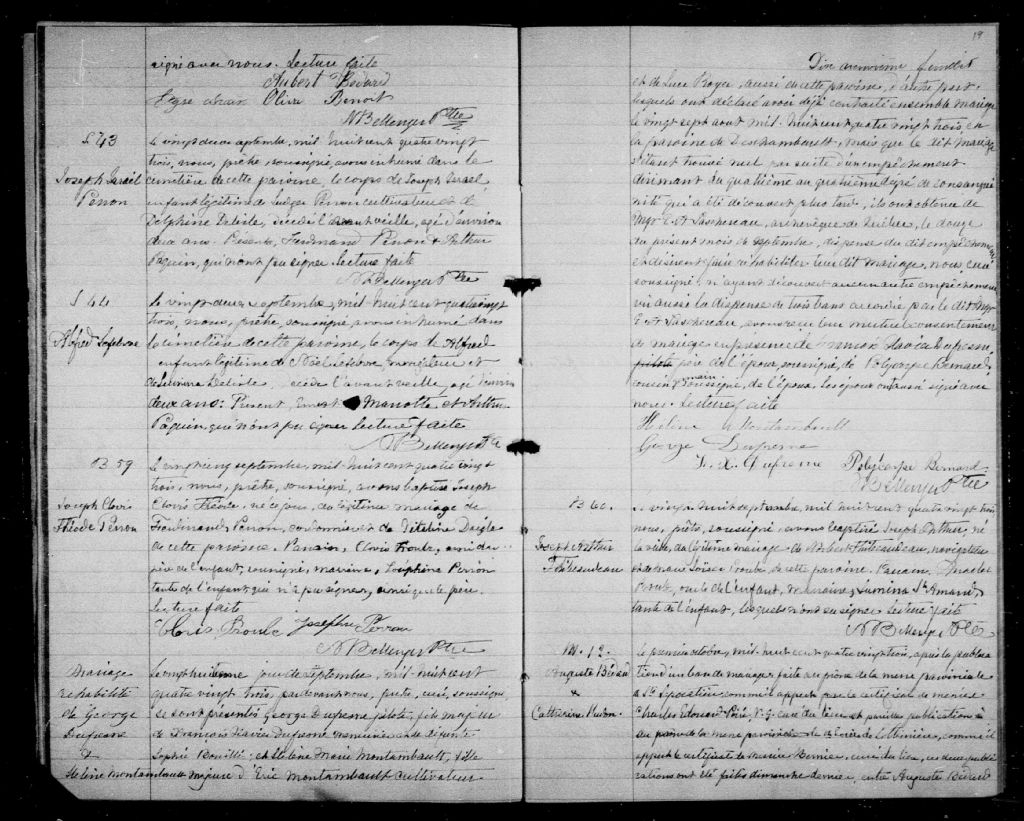 signé avec nous. Lecture faite
Aubert Bédard
Olive Benoit
N Bellenger Ptre
S 43
Joseph Israël
Perron
Le vingt deux septembre, mil huit cent quatre vingt
trois, nous, prêtre, soussigné, avons inhumé dans le
cimetière de cette paroisse, le corps de Joseph Israël
enfant légitime de Ludger Perron cultivateur et de
Delphine Delisle, décédé l'avant veille, agé d'environ
deux ans. Présents, Ferdinand Perron & Arthur
Paquin, qui n'ont pu signer. Lecture faite
N Bellenger Ptre
S 44
Alfred Lefebvre
Le vingt deux septembre, mil huit cent quatre vingt
trois, nous, prêtre, soussigné, avons inhumé dans
le cimetière de cette paroisse, le corps de Alfred
enfant légitime de Noël Lefebvre, navigateur et
Delisle, décédé l'avant veille, agé d'environ
deux ans: Présent, Ernest Mariotte, et Arthur
Paquin, qui n'ont pu signer Lecture faite
N Bellenger Ptre
B 59
Joseph Clovis
Théode Perron
Le vingt cinq septembre, mil huit cent quatre vingt
trois, nous, prêtre, soussigné, avons baptisé Joseph
Clovis Théode, né ce jour, du légitime mariage de
Ferdinand Perron, cordonnier et de Vitaline Daigle
de cette paroisse. Parrain, Clovis Proulx, ami du
père de l'enfant, soussigné, marraine, Joséphine Perron
tante de l'enfant qui n'a pu signer, ainsi que le père.
Lecture faite
Clovis Proulx Joséphine Perron
N Bellenger Ptre
Mariage
réhabilité
de George
Dufresne
&
Hélène Montambault
Le vingt huitième jour de septembre, mil huit cent
quatre vingt trois, par devant nous, prêtre, curé, soussigné
se sont présentés George Dufresne pilote, fils majeur
de François Xavier Dufresne menuisier et de défunte
Sophie Bouillé; et Hélène Marie Montambault, fille
majeure d'Eric Montambault cultivateur
19
Dix neuvième feuillet
et de Luce Royer, aussi de cette paroisse, d'autre part:
lesquels ont déclaré avoir déjà contracté ensemble mariage
le vingt sept août mil huit cent quatre vingt trois, en
la paroisse de Deschambault, mais que le dit mariage
s'étant trouvé nul par suite d'un empêchement
dirimant du quatrième au quatrième dégré de consangui
nité qui a été découvert plus tard, ils ont obtenu de
Mgr E. A Taschereau, archevêque de Québec, le douze
du présent mois de septembre, dispense du dit empêchement
et désirent faire réhabiliter leur dit mariage, nous, curé
soussigné, n'ayant découvert aucun autre empêchement
vu aussi la dispense de trois bans accordée par le dit Mgr
E. A Taschereau, avons reçu leur mutuel consentement
de mariage en présence de François Xavier Dufresne
père de l'époux, soussigné, de Polycarpe Bernard,
cousin soussigné, de l'épouse. Les époux ont aussi signé avec
nous. Lecture faite
Hélène Montambault
George Dufresne
F. X. Dufresne Polycarpe Bernard
N Bellenger Ptre
B 60.
Joseph Arthur
Thibeaudeau
Le vingt huit septembre, mil huit cent quatre vingt trois
nous, prêtre, soussigné avons baptisé Joseph Arthur, né
la veille, du légitime mariage de Thibeaudeau, navigateur
et de Louise Proulx de cette paroisse. Parrain,
Proulx, oncle de l'enfant, marraine, Lumina St Amand,
tante de l'enfant, lesquels n'ont su signer. Lecture faite
N Bellenger Ptre
M. 12.
Auguste Bédard
&
Catherine Hudon
Le premier octobre, mil huit cent quatre vingt trois, après la publica
tion d'un ban de mariage faite au prône de la messe paroissiale
comme il appert par le certificat de messire
Charles Edouard Poiré, V.G. curé du lieu et pareille publication
au prône de la messe paroissiale de Lotbinière, comme il
appert le certificat de messire Bernier, curé du lieu, ces deux publi
cations ont été faites dimanche dernier, entre Auguste Bédard